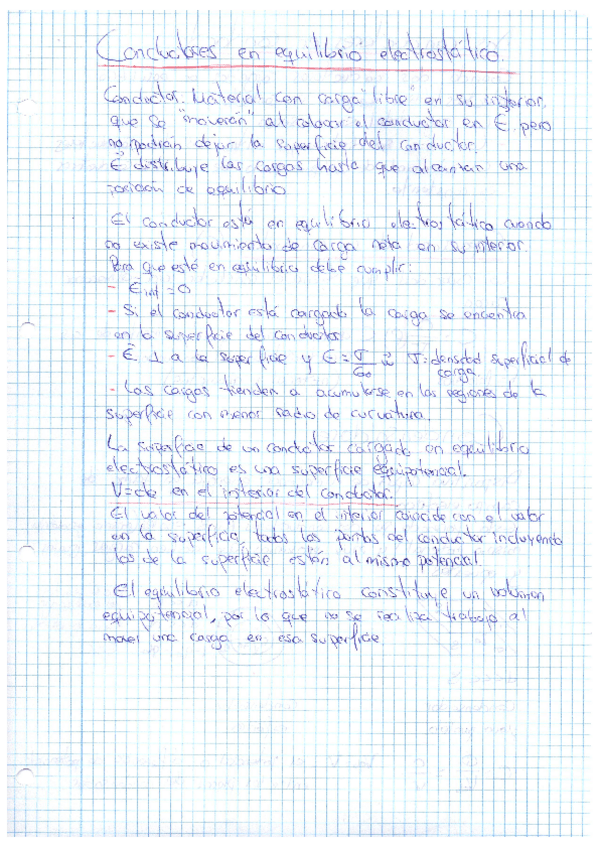 Conductores en equilibrio electrostático.
Conductor: Material con carga "libre" en su interior.
que se "moverán" al colocar el conductor en E pero
no podrán dejar la superficie del conductor.
E distribuye las cargas hasta que alcanzan una
posición de equilibrio
El conductor está en equilibrio electrostático cuando
no existe movimiento de carga neta en su interior.
Para que esté en equilibrio debe cumplir:
- E int = 0
- Si el conductor está cargado la carga se encuentra
en la superficie del conductor
- E ⊥ a la superficie y E = σ/ε₀ σ: densidad superficial de
carga
- Las cargas tienden a acumularse en las regiones de la
superficie con menor radio de curvatura.
La superficie de un conductor cargado en equilibrio
electrostático es una superficie equipotencial.
V=cte en el interior del conductor.
El valor del potencial en el interior coincide con el valor
en la superficie, todos los puntos del conductor incluyendo
los de la superficie están al mismo potencial.
El equilibrio electrostático constituye un volumen
equipotencial, por lo que no se realiza trabajo al
mover una carga en esa superficie.